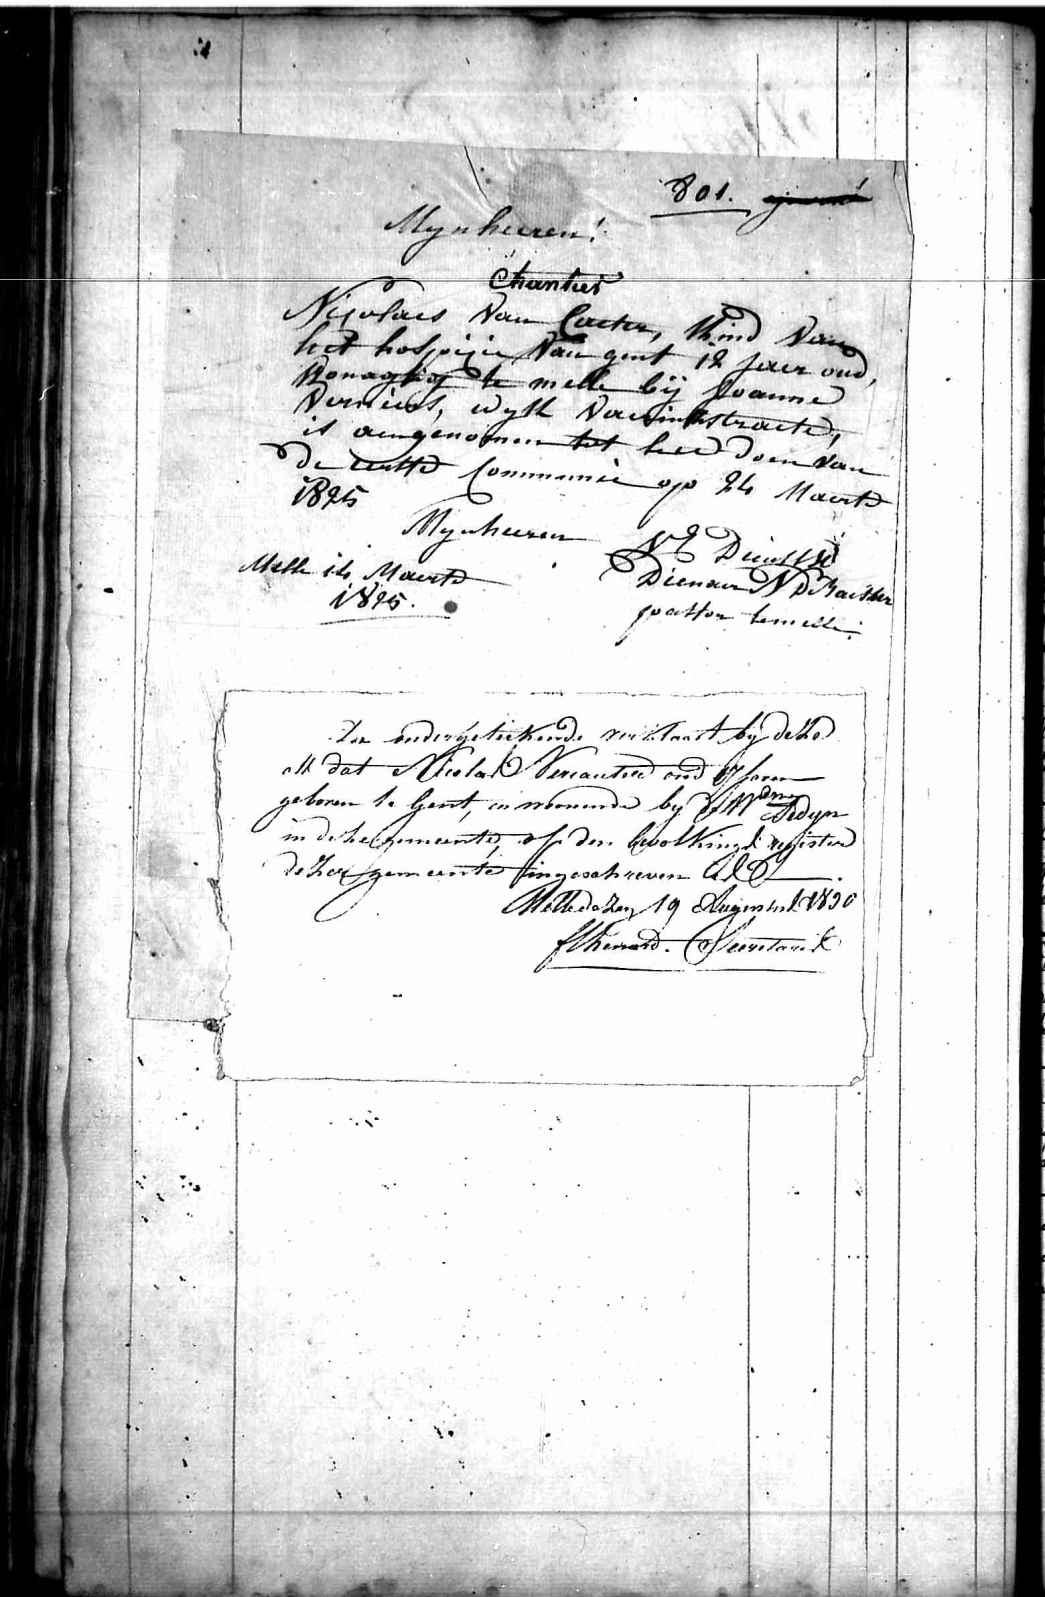 801.
Mynheeren!
Chantier
Nicolaes Van Caeter, Kind Van
het hospicie Van gent 12 jaer oud,
Wonagtig te melle bij Joanne
Verniers, wyk Varinkstraete,
is aengenomen tot het doen van
de eerste Communie op 24 Maerte
1825
Mynheeren
VE Dienste
Melle 14 Maerte
Dienaer N D Backer
1825.
pastor te melle.
Den ondergeteekende verklaart bij deze
als dat Nicolas Vercauter oud 17 Jaren
geboren te Gent, en woonende by de We
in deze gemeente, op den bevolkings register
dezer gemeente ingeschreven is
Melle dezen 19 Augustus 1830
Secretaris